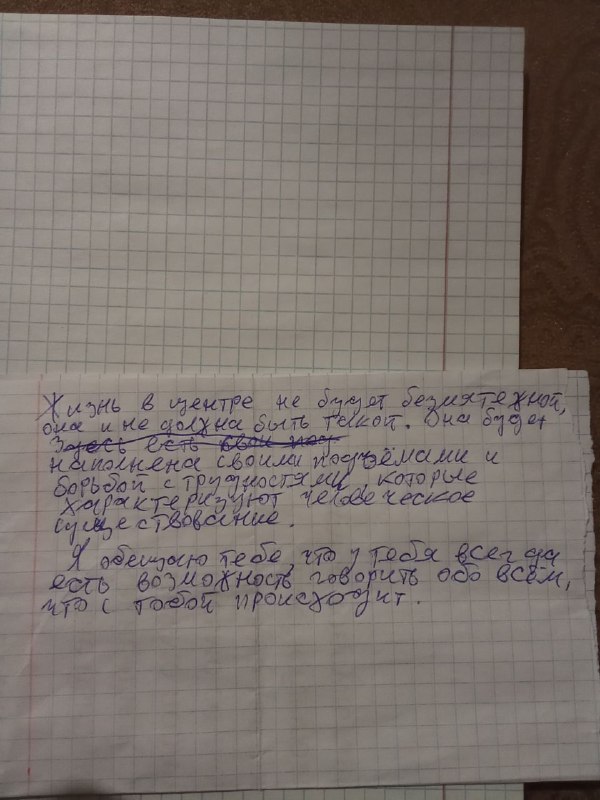 Жизнь в центре не будет безмятежной,
она и не должна быть такой. Она будет
Здесь есть свои
наполнена своими подъёмами и
борьбой с трудностями, которые
характеризуют человеческое
существование.
Я обещаю тебе, что у тебя всегда
есть возможность говорить обо всём,
что с тобой происходит.